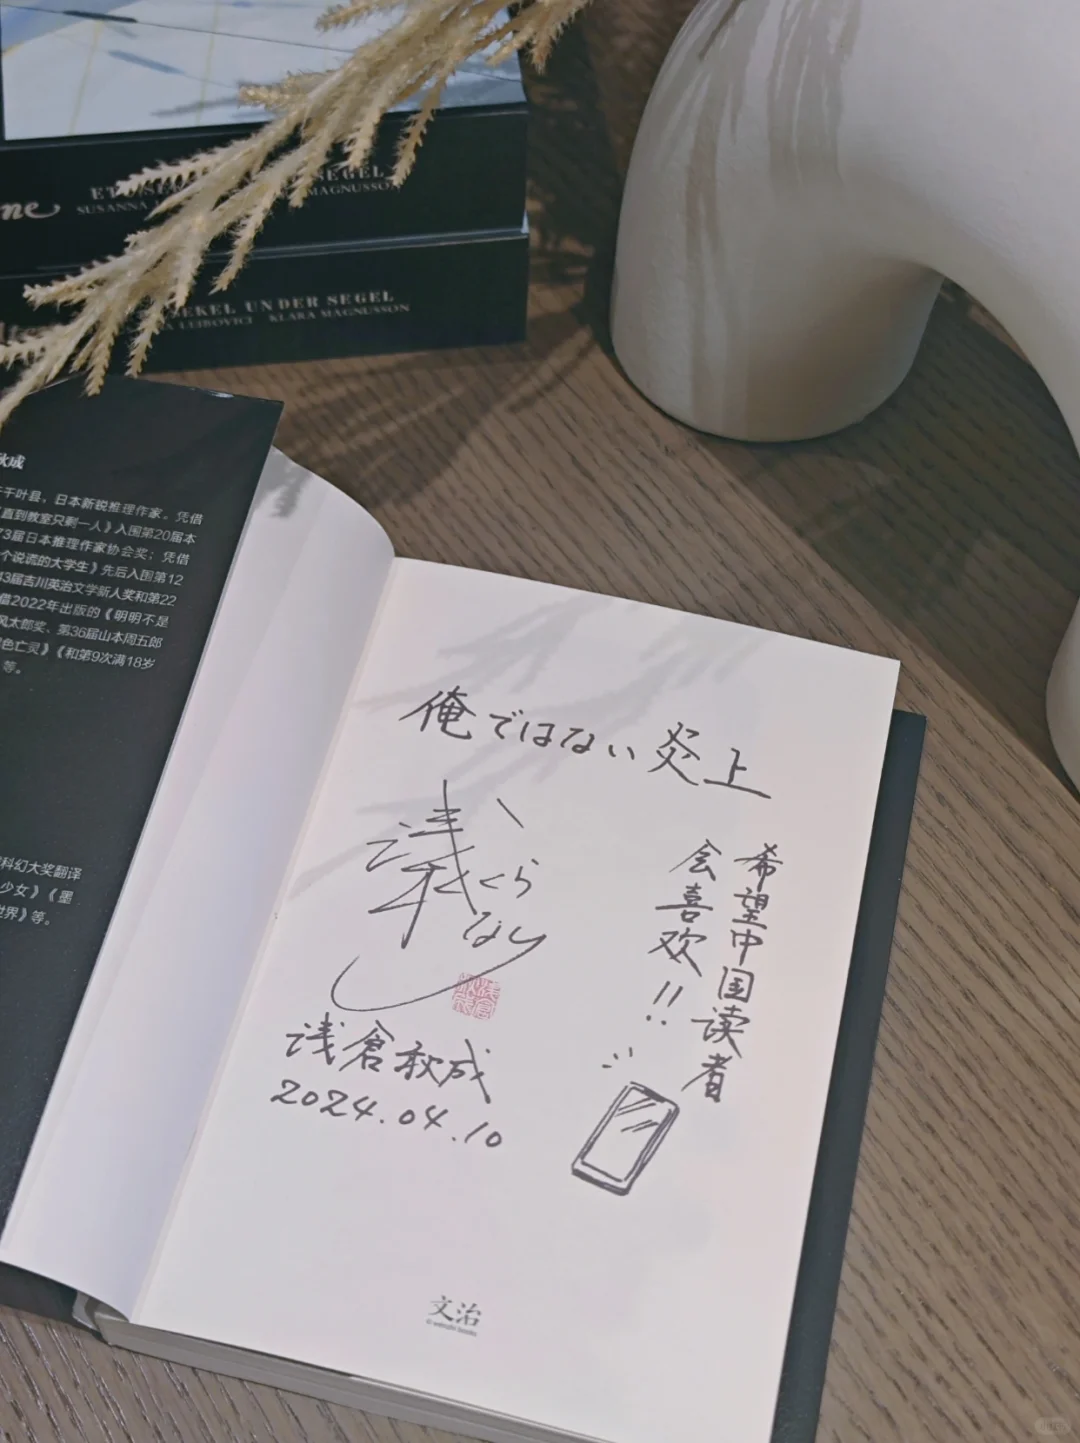 SUSANNA
MAGNUSSON
EKEL UNDER SEGEL
LEIBOVICI KLARA MAGNUSSON
秋成
千叶县，日本新锐推理作家。凭借
直到教室只剩一人》入围第20届本
73届日本推理作家协会奖；凭借
个说谎的大学生》先后入围第12
43届吉川英治文学新人奖和第22
2022年出版的《明明不是
风太郎奖、第36届山本周五郎
色亡灵》《和第9次满18岁
等。
科幻大奖翻译
少女》《墨
世界》等。
俺ではない炎上
希望中国读者
会喜欢!!
浅倉秋成
2024.04.10
文治